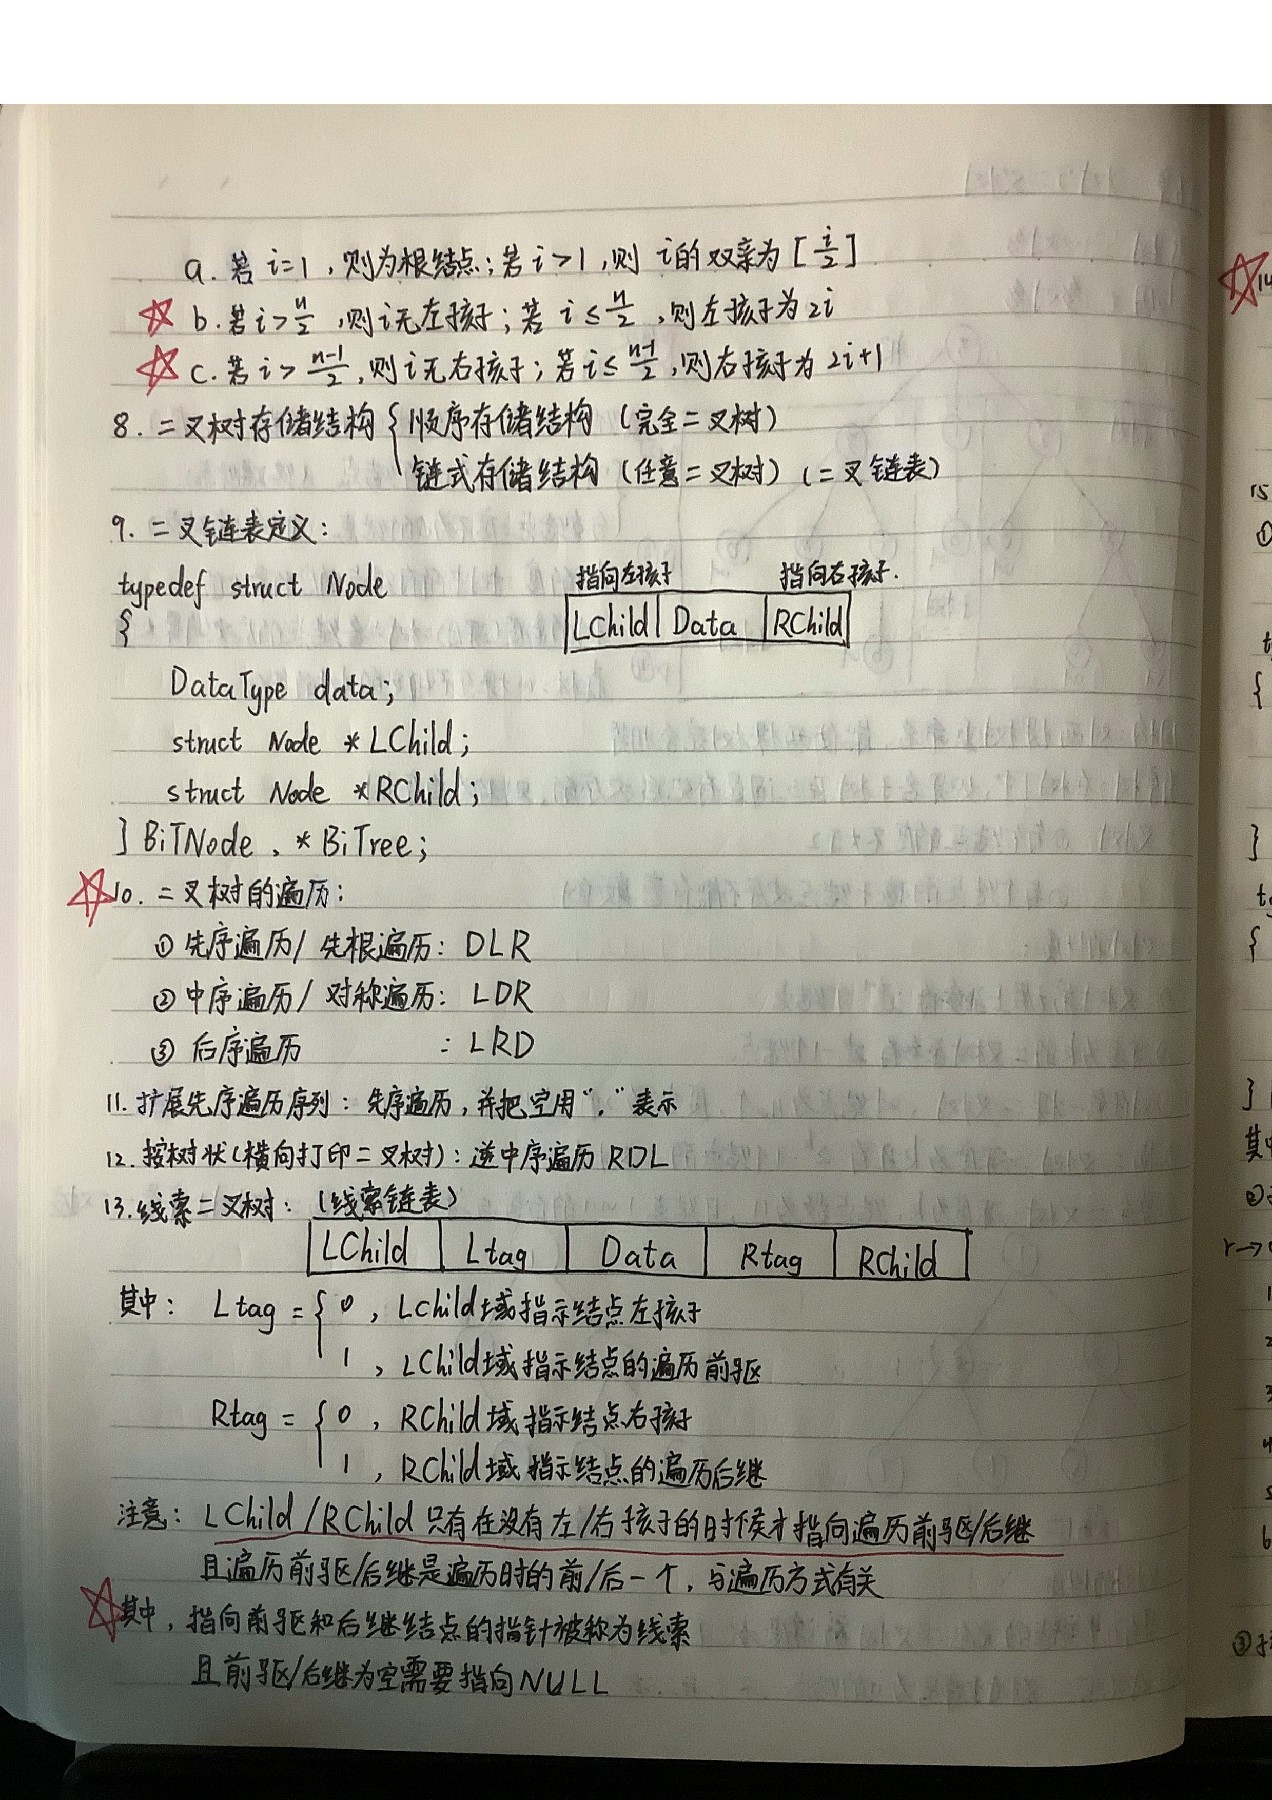 a. 若 i=1，则为根结点；若 i>1，则 i的双亲为 [i/2]
☆ b. 若 i>n/2，则i无左孩子；若 i≤n/2，则左孩子为 2i
☆ c. 若 i>(n-1)/2，则i无右孩子；若 i≤(n-1)/2，则右孩子为 2i+1
8. 二叉树存储结构 { 顺序存储结构（完全二叉树）
链式存储结构（任意二叉树）（二叉链表）
9. 二叉链表定义：
typedef struct Node
指向左孩子 指向右孩子.
{
LChild | Data | RChild
DataType data;
struct Node *LChild;
struct Node *RChild;
} BiTNode、*BiTree;
☆ 10. 二叉树的遍历：
① 先序遍历/ 先根遍历：DLR
② 中序遍历/ 对称遍历：LDR
③ 后序遍历 ：LRD
11. 扩展先序遍历序列：先序遍历，并把空用“.”表示
12. 按树状（横向打印二叉树）：逆中序遍历 RDL
13. 线索二叉树：（线索链表）
LChild | Ltag | Data | Rtag | RChild
其中： Ltag = { 0，LChild域指示结点左孩子
1，LChild域指示结点的遍历前驱
Rtag = { 0，RChild域指示结点右孩子
1，RChild域指示结点的遍历后继
注意：LChild/RChild 只有在没有左/右孩子的时候才指向遍历前驱/后继
且遍历前驱/后继是遍历时的前/后一个，与遍历方式有关
☆ 其中，指向前驱和后继结点的指针被称为线索
且前驱/后继为空需要指向NULL
☆ 14
15
①
{
}
{
}
其中
②
r→
1
2
3
4
5
6
③